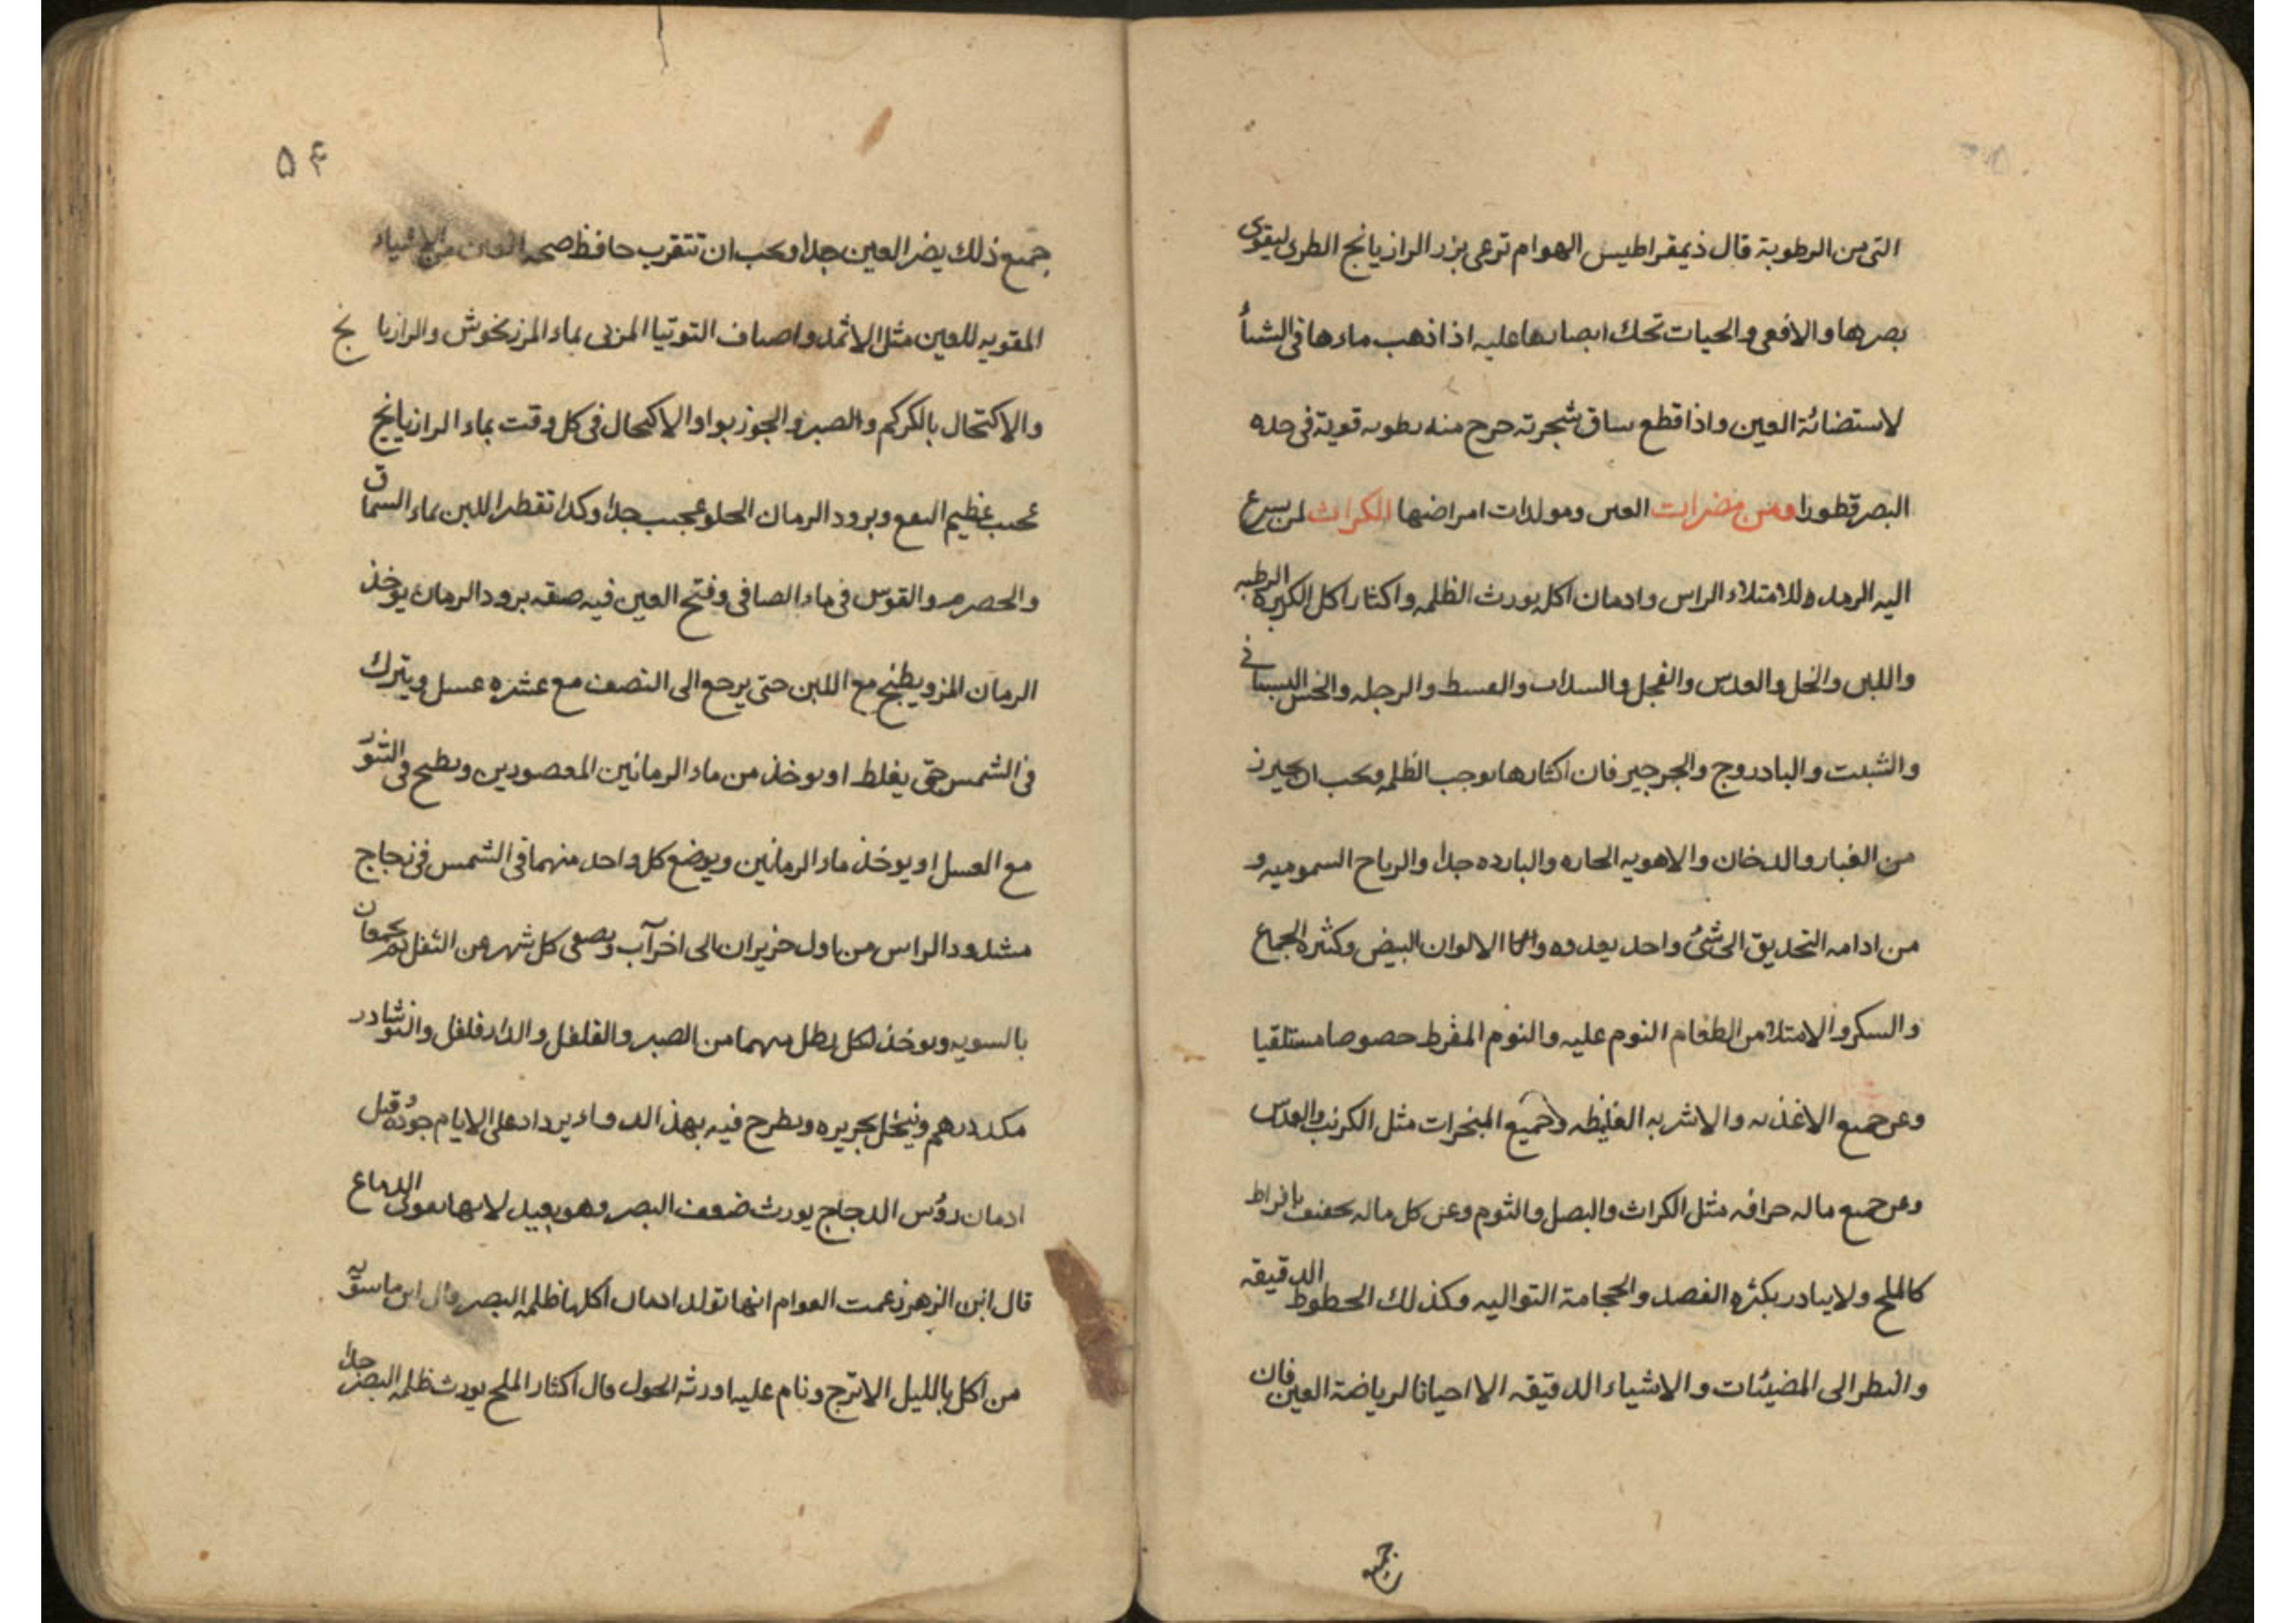 التى من الرطوبة قال ذيمقراطيس الهوام ترعى بزر الرازيانج الطرى ليقوى
بصرها والافعى والحيات تحك ابصارها عليه اذا ذهب ماءها فى الشتأ
لاستضائة العين واذا قطع ساق شجرته خرج منه رطوبه قوية فى حده
البصر قطورا ومن مضرات العين ومولدات امراضها الكراث لمن يسرع
اليه الرمد وللامتلاء الراس وادمان اكله يورث الظلمه واكثار اكل الكزبره الرطبه
واللبن والخل والعدس والفجل والسداب والقسط والرجله والخس البستانى
والشبت والبادروج والجرجير فان اكثارها يوجب الظلمه ويجب ان يحترز
من الغبار والدخان والاهويه الحاره والبارده جدا والرياح السموميه و
من ادامه التحديق الى شئ واحد يعدوه الالوان البيض وكثره الجماع
والسكر والامتلا من الطعام النوم عليه والنوم المفرط حصوصا مستلقيا
وعن جميع الاغذيه والاشربه الغليظه وجميع المبخرات مثل الكرنب والعدس
وعن جميع ماله حرافه مثل الكراث والبصل والثوم وعن كل ماله تجفيف بافراط
كالملح ولايبادر بكثره الفصد والحجامة التواليه وكذلك الخطوط الدقيقه
والنظر الى المضيئات والاشياء الدقيقه الا احيانا لرياضة العين فان
جميع
۵۴
جميع ذلك يضر العين جدا ويجب ان تتقرب حافظ صحه العين من الاشياء
المقويه للعين مثل الاثمد واصناف التوتيا المربى بماء المرزنخوش والرازيانج
والاكتحال بالكركم والصبر والجوزبوا والاكتحال فى كل وقت بماء الرازيانج
عجيب عظيم النفع وبرود الرمان الحلو عجيب جدا وكذا تقطر اللبن بماء السماق
والحصرم والقوس فى ماء الصافى وفتح العين فيه صفه برود الرمان يوخذ
الرمان المز ويطبخ مع اللبن حتى يرجع الى النصف مع عشره عسل ويترك
فى الشمس حتى يغلظ او يوخذ من ماء الرمانين المعصورين ويطبخ فى التنور
مع العسل او يوخذ ماء الرمانين ويوضع كل واحد منهما فى الشمس فى زجاج
مشدود الراس من اول حزيران الى اخر آب ويصفى كل شهر عن الثفل ثم يجمعان
بالسويه ويوخذ لكل رطل منهما من الصبر والفلفل والدارفلفل والنوشادر
مكد درهم وينخل بحريره ويطرح فيه بهذ الدواء يزداد على الايام جودة وقيل
ادمان رؤس الدجاج يورث ضعف البصر وهو بعيد لانها تقوى الدماغ
قال ابن الزهر زعمت العوام انها تولد ادمان اكلها ظلمه البصر وقال ابن ماسويه
من اكل بالليل الاترج ونام عليه اورثه الحول وقال اكثار الملح يورث ظلمه البصر جدا